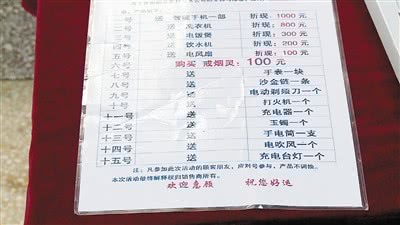 一号 送 手机一部 折现：1000元
二号 送 洗衣机 折现：800元
三号 送 电饭煲 折现：300元
四号 送 饮水机 折现：200元
五号 送 电风扇 折现：100元
购买 戒烟灵：100元
六号 送 手表一块
七号 送 沙金链一条
八号 送 电动剃须刀一个
九号 送 打火机一个
十号 送 充电器一个
十一号 送 玉镯一个
十二号 送 手电筒一支
十三号 送 电吹风一个
十四号 送 充电台灯一个
十五号
注：凡参加此次活动的顾客朋友，应对号参与，产品不调换。
本次活动最终解释权归销售商所有。
欢迎惠顾 祝您好运